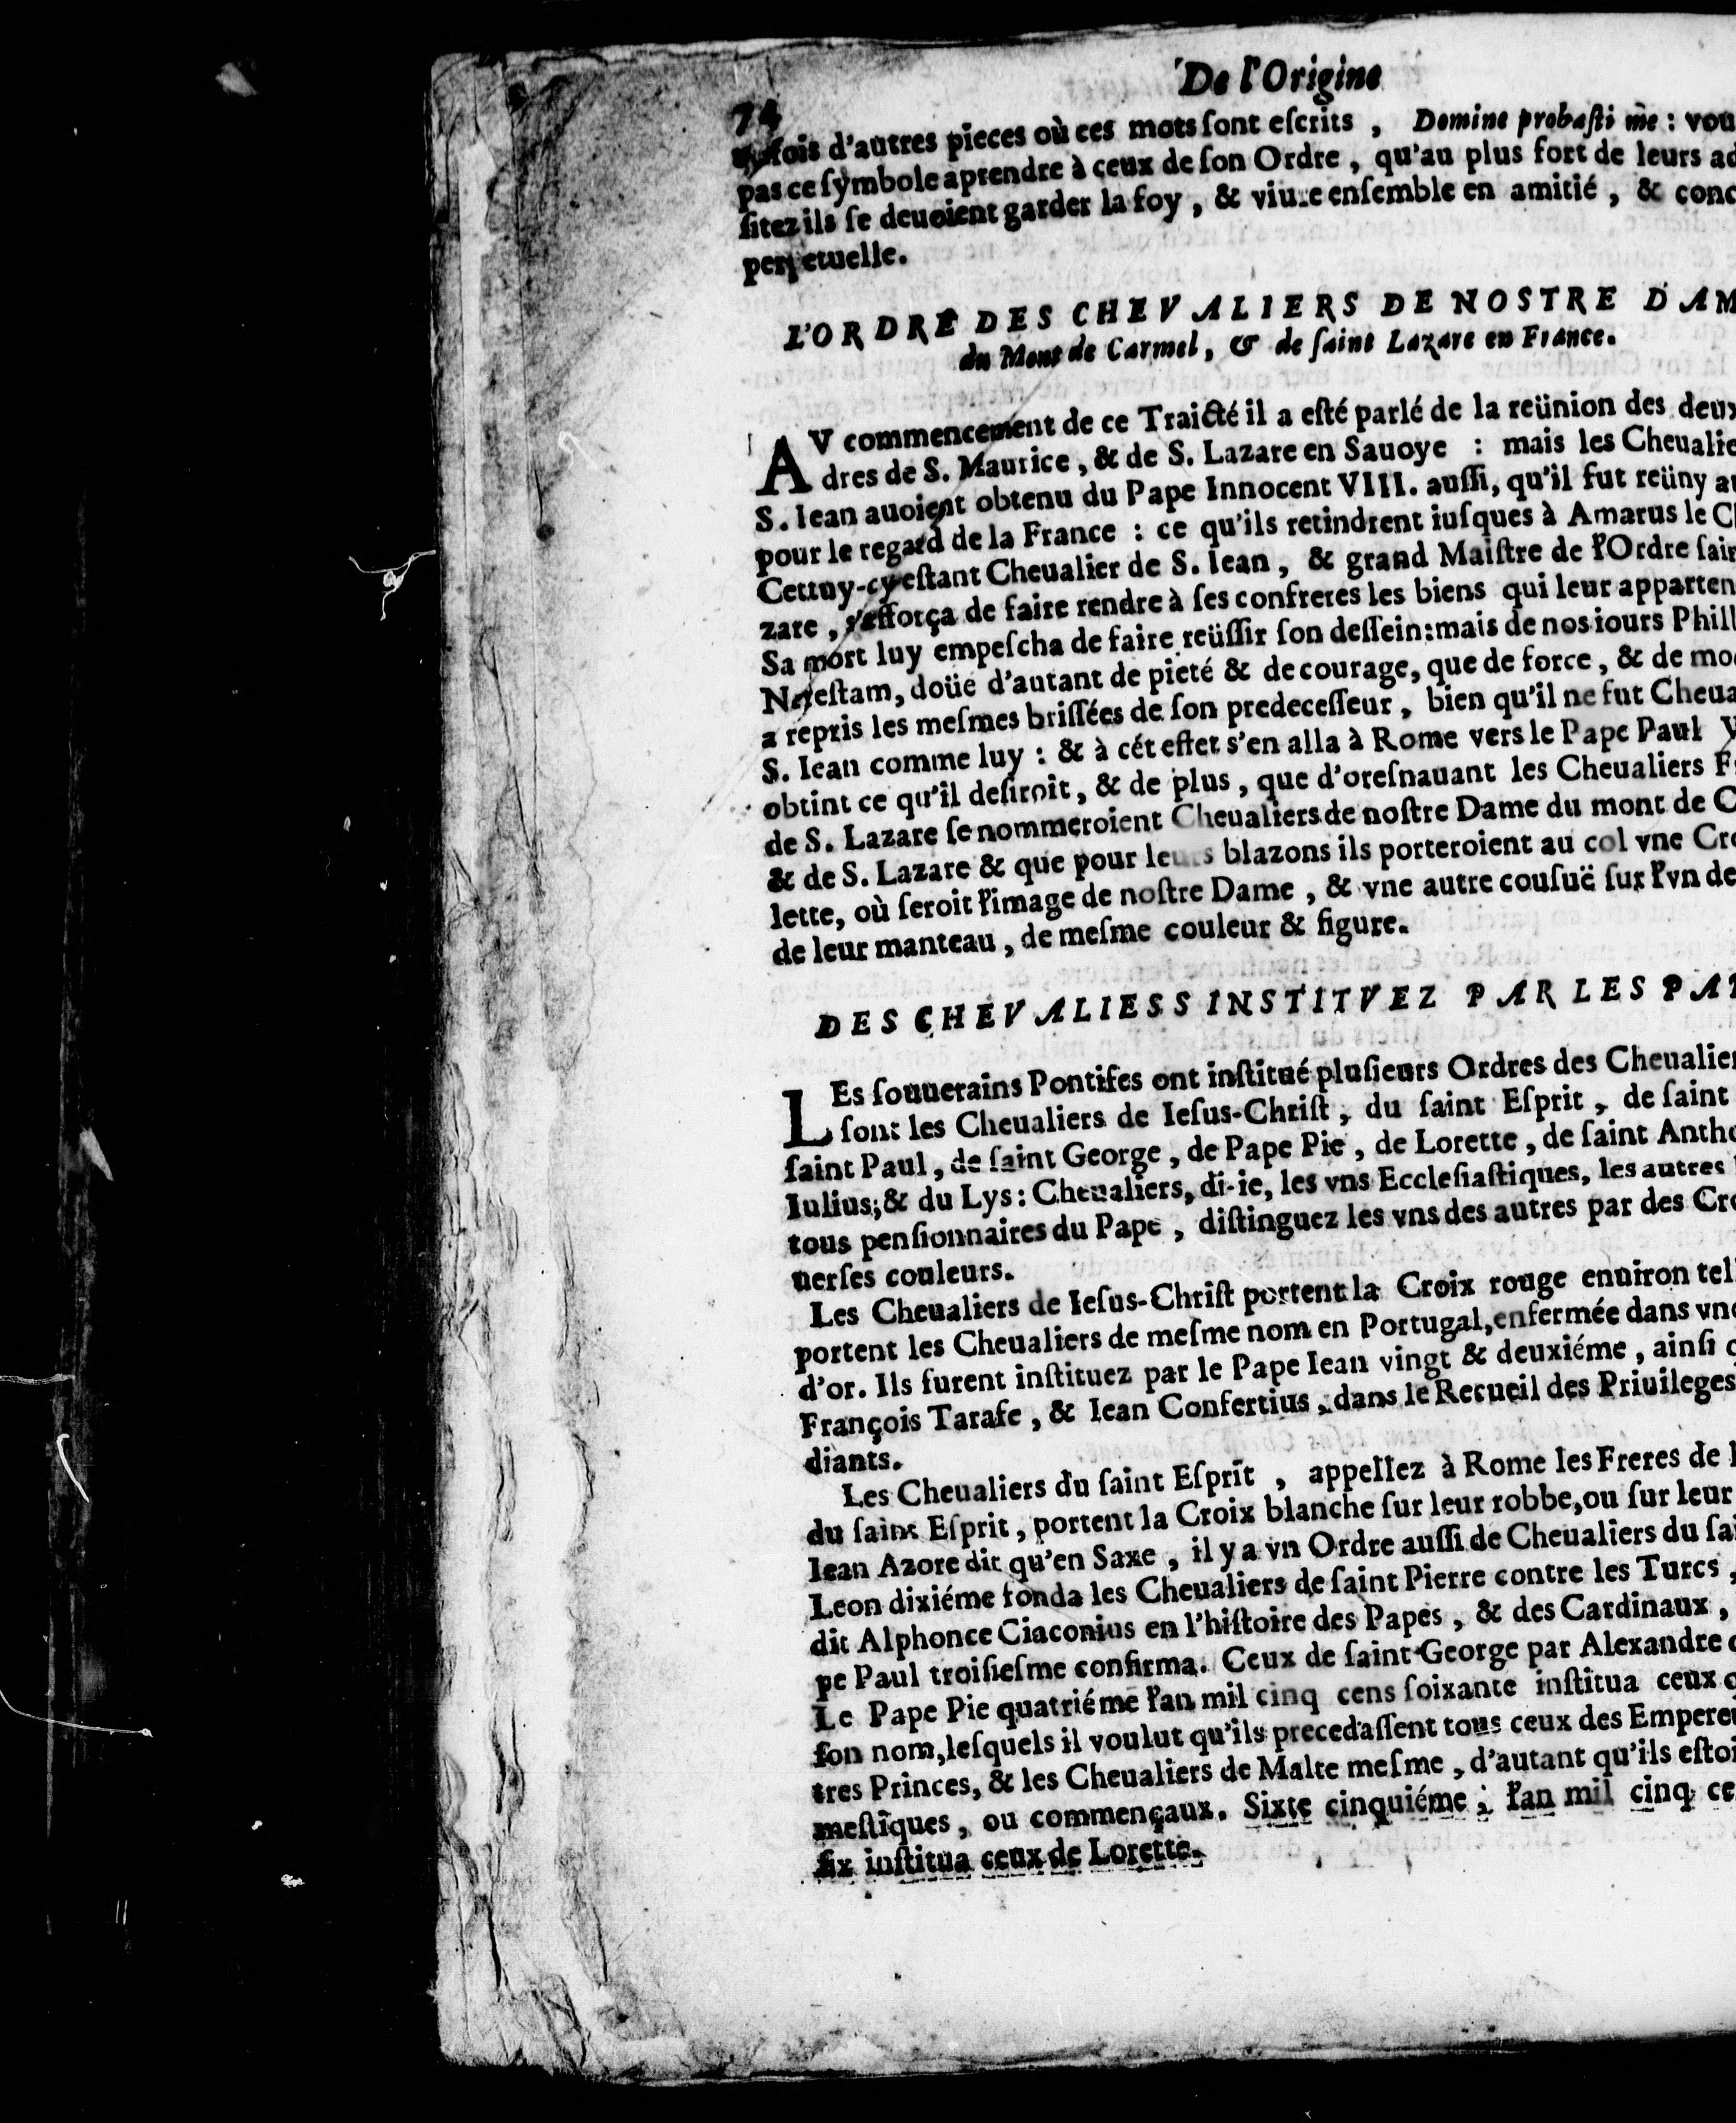 De l'Origine
74
d'autres pieces où ces mots ſont eſcrits , Domine probaſti me : vou
pas ce ſymbole aprendre à ceux de ſon Ordre , qu'au plus fort de leurs ad
ſitez ils ſe deuoient garder la foy , & viure enſemble en amitié , & conc
perpetuelle.
L'ORDRE DES CHEVALIERS DE NOSTRE DAM
du Mont de Carmel, & de ſaint Lazare en France.
AV commencement de ce Traicté il a eſté parlé de la reünion des deux
dres de S. Maurice , & de S. Lazare en Sauoye : mais les Cheualie
S. Iean auoient obtenu du Pape Innocent VIII. auſſi, qu'il fut reüny au
pour le regard de la France : ce qu'ils retindrent iuſques à Amarus le C
Cettuy-cy eſtant Cheualier de S. Iean , & grand Maiſtre de l'Ordre ſain
zare , s'efforça de faire rendre à ſes confreres les biens qui leur apparten
Sa mort luy empeſcha de faire reüſſir ſon deſſein: mais de nos iours Phil
Nereſtam, doüé d'autant de pieté & de courage, que de force , & de mo
a repris les meſmes briſſées de ſon predeceſſeur , bien qu'il ne fut Cheua
S. Iean comme luy : & à cét effet s'en alla à Rome vers le Pape Paul V
obtint ce qu'il deſiroit , & de plus , que d'oreſnauant les Cheualiers F
de S. Lazare ſe nommeroient Cheualiers de noſtre Dame du mont de C
& de S. Lazare & que pour leurs blazons ils porteroient au col vne Cro
lette, où ſeroit l'image de noſtre Dame , & vne autre couſuë ſur l'vn de
de leur manteau , de meſme couleur & figure.
DES CHEVALIESS INSTITVEZ PAR LES PAP
LEs ſouuerains Pontifes ont inſtitué pluſieurs Ordres des Cheualier
ſont les Cheualiers de Ieſus-Chriſt , du ſaint Eſprit , de ſaint
ſaint Paul , de ſaint George , de Pape Pie , de Lorette , de ſaint Antho
Iulius; & du Lys: Cheualiers, di-ie, les vns Eccleſiaſtiques, les autres
tous penſionnaires du Pape , diſtinguez les vns des autres par des Cro
uerſes couleurs.
Les Cheualiers de Ieſus-Chriſt portent la Croix rouge enuiron tel
portent les Cheualiers de meſme nom en Portugal, enfermée dans vne
d'or. Ils furent inſtituez par le Pape Iean vingt & deuxiéme , ainſi q
François Tarafe , & Iean Confertius , dans le Recueil des Priuileges
diants.
Les Cheualiers du ſaint Eſprit , appellez à Rome les Freres de l
du ſaint Eſprit , portent la Croix blanche ſur leur robbe, ou ſur leur
Iean Azore dit qu'en Saxe , il y a vn Ordre auſſi de Cheualiers du ſai
Leon dixiéme fonda les Cheualiers de ſaint Pierre contre les Turcs ,
dit Alphonce Ciaconius en l'hiſtoire des Papes , & des Cardinaux ,
pe Paul troiſieſme confirma. Ceux de ſaint George par Alexandre
Le Pape Pie quatriéme l'an mil cinq cens ſoixante inſtitua ceux
ſon nom, leſquels il voulut qu'ils precedaſſent tous ceux des Empere
tres Princes, & les Cheualiers de Malte meſme , d'autant qu'ils eſtoi
meſtiques , ou commençaux. Sixte cinquiéme ; l'an mil cinq ce
ſix inſtitua ceux de Lorette.